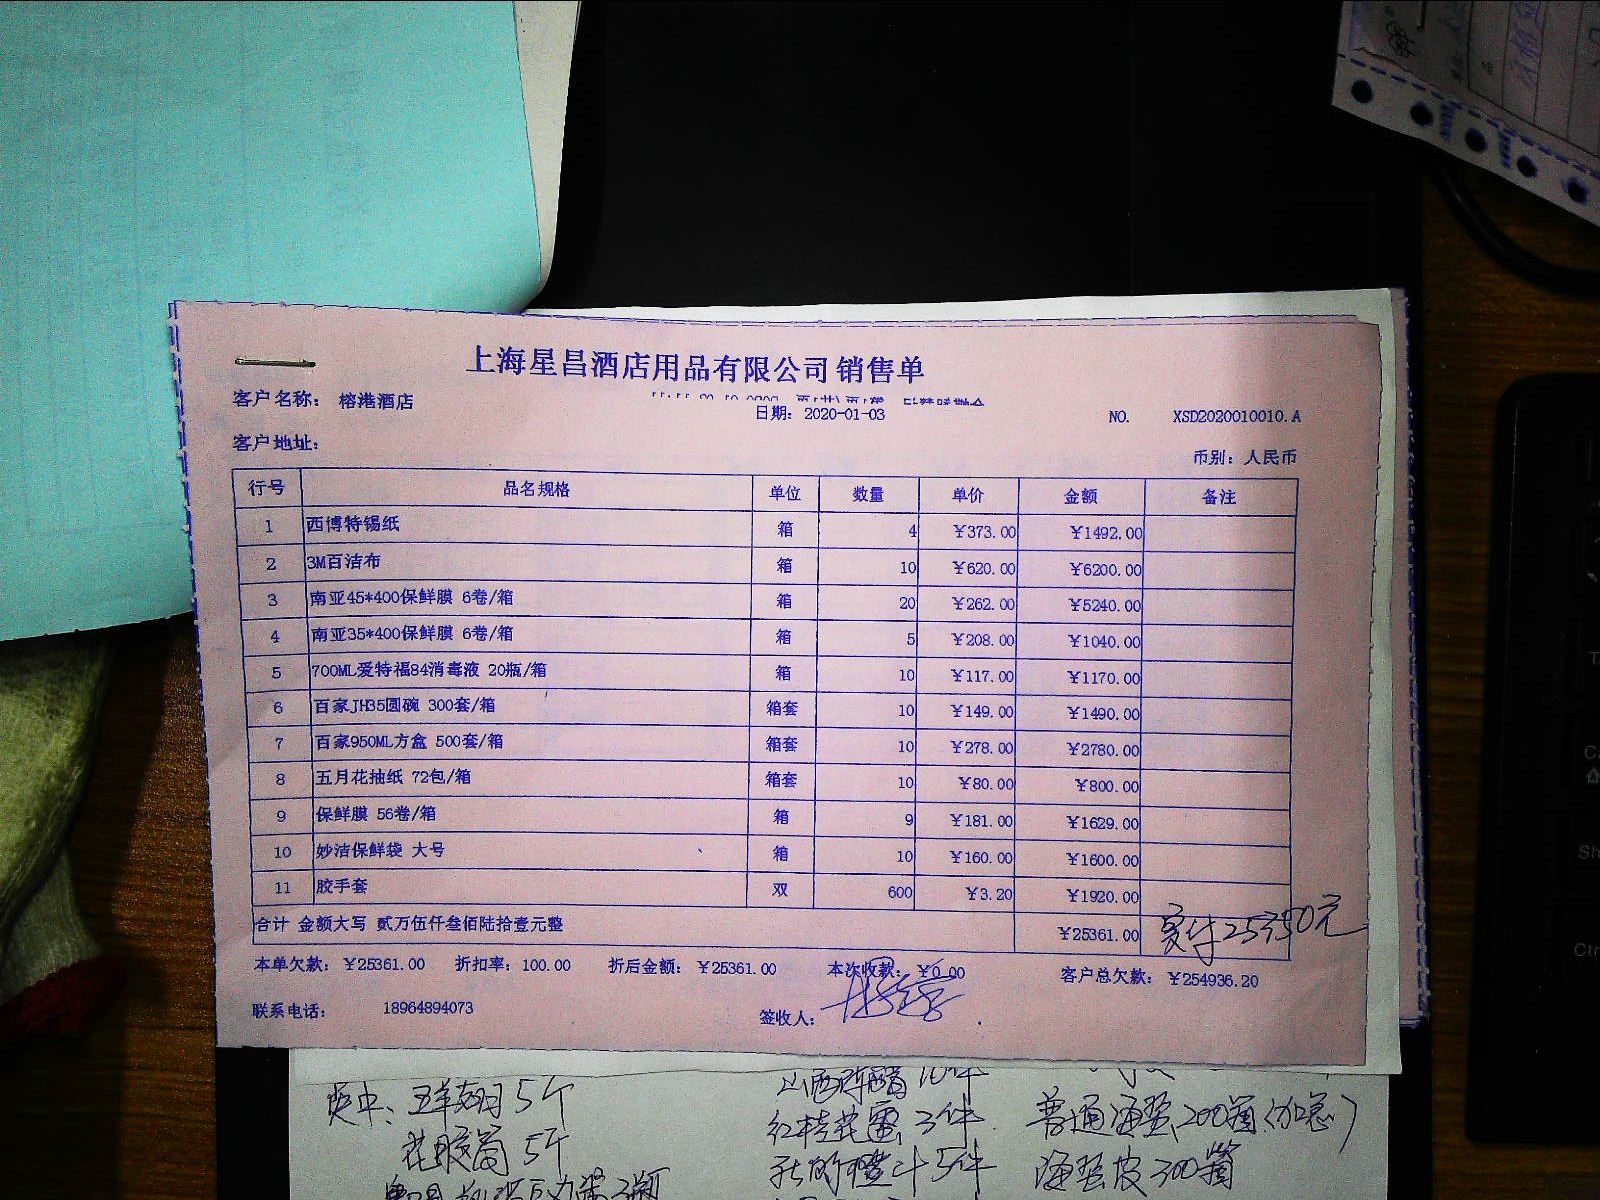 上海星昌酒店用品有限公司销售单
客户名称： 榕港酒店
日期： 2020-01-03
NO. XSD2020010010.A
客户地址：
币别：人民币
行号 品名规格 单位 数量 单价 金额 备注
1 西博特锡纸 箱 4 ¥373.00 ¥1492.00
2 3M百洁布 箱 10 ¥620.00 ¥6200.00
3 南亚45*400保鲜膜 6卷/箱 箱 20 ¥262.00 ¥5240.00
4 南亚35*400保鲜膜 6卷/箱 箱 5 ¥208.00 ¥1040.00
5 700ML爱特福84消毒液 20瓶/箱 箱 10 ¥117.00 ¥1170.00
6 百家JH35圆碗 300套/箱 箱套 10 ¥149.00 ¥1490.00
7 百家950ML方盒 500套/箱 箱套 10 ¥278.00 ¥2780.00
8 五月花抽纸 72包/箱 箱套 10 ¥80.00 ¥800.00
9 保鲜膜 56卷/箱 箱 9 ¥181.00 ¥1629.00
10 妙洁保鲜袋 大号 箱 10 ¥160.00 ¥1600.00
11 胶手套 双 600 ¥3.20 ¥1920.00
合计 金额大写 贰万伍仟叁佰陆拾壹元整 ¥25361.00 实付25350元
本单欠款：¥25361.00 折扣率：100.00 折后金额：¥25361.00 本次收款：¥0.00 客户总欠款：¥254936.20
联系电话： 18964894073 签收人：
5个
山西陈醋10件
红桂花露3件
普通海蜇200箱（加急）
花胶筒5斤
橙汁5件
海蜇皮300箱